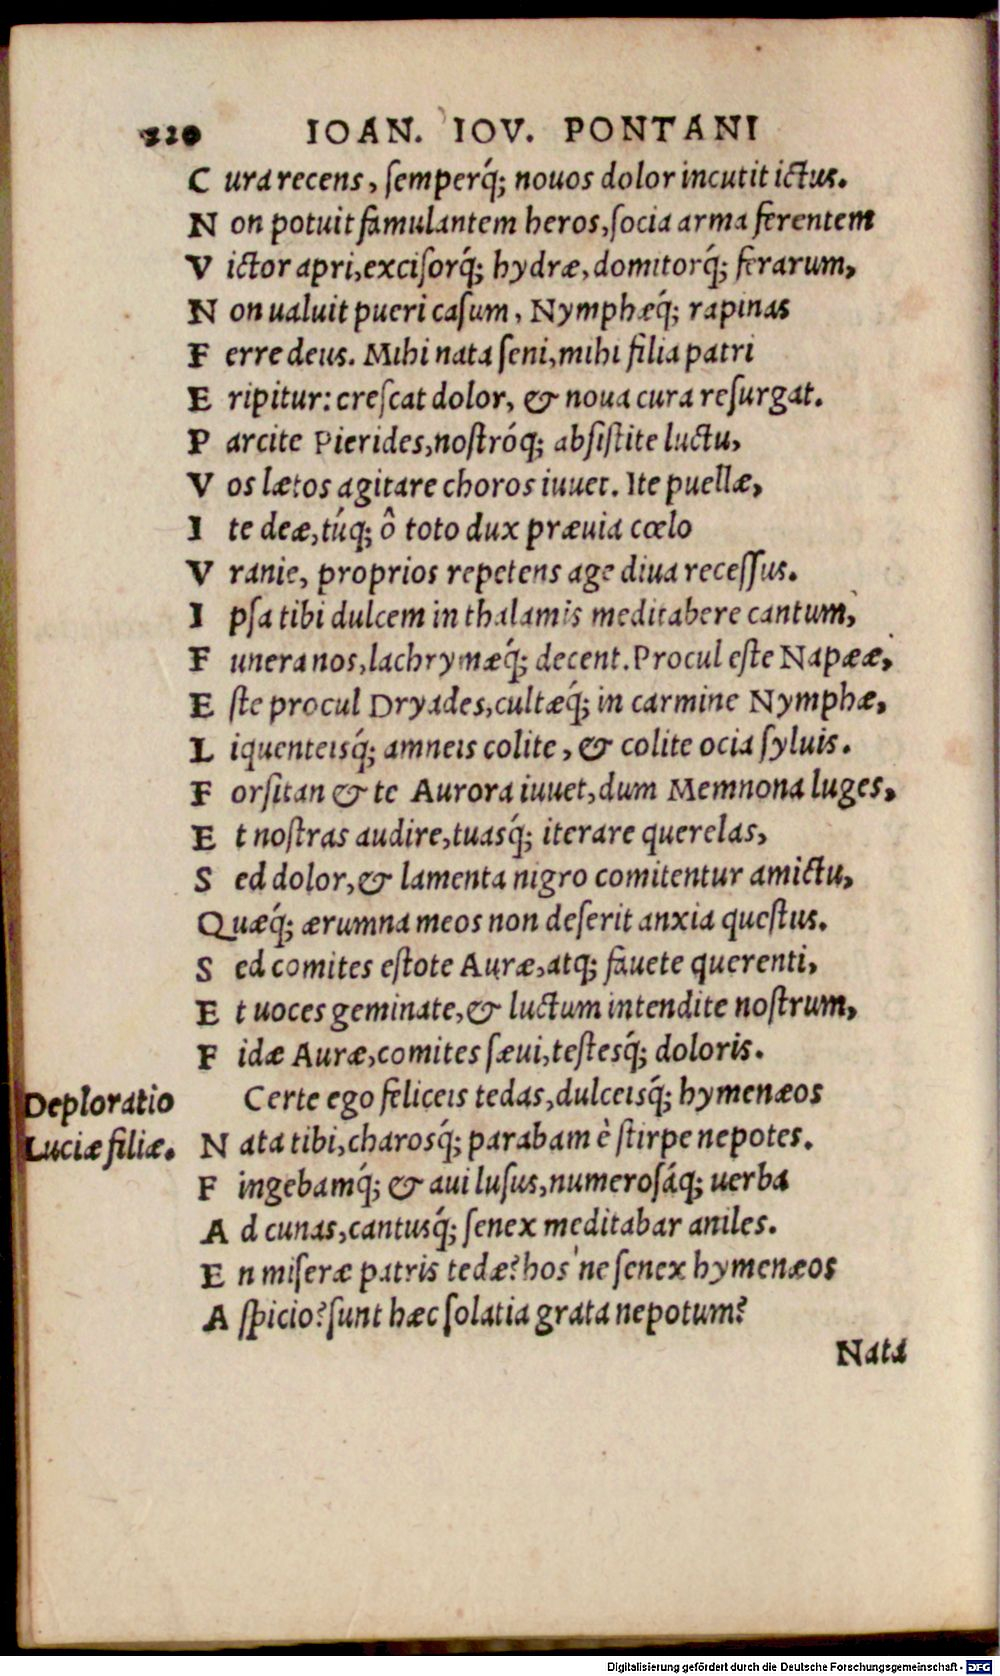 220 IOAN. IOV. PONTANI
C ura recens, ſemperq́; nouos dolor incutit ictus.
N on potuit famulantem heros, ſocia arma ferentem
V ictor apri, exciſorq́; hydræ, domitorq́; ferarum,
N on ualuit pueri caſum, Nymphæq́; rapinas
F erre deus. Mihi nata ſeni, mihi filia patri
E ripitur: creſcat dolor, & noua cura reſurgat.
P arcite Pierides, noſtróq; abſiſtite luctu,
V os lætos agitare choros iuuet. Ite puellæ,
I te deæ, túq; ô toto dux præuia cœlo
V ranie, proprios repetens age diua receſſus.
I pſa tibi dulcem in thalamis meditabere cantum,
F unera nos, lachrymæq́; decent. Procul eſte Napææ,
E ſte procul Dryades, cultæq́; in carmine Nymphæ,
L iquenteisq́; amneis colite, & colite ocia ſyluis.
F orſitan & te Aurora iuuet, dum Memnona luges,
E t noſtras audire, tuasq́; iterare querelas,
S ed dolor, & lamenta nigro comitentur amictu,
Quæq́; ærumna meos non deſerit anxia queſtus.
S ed comites eſtote Auræ, atq; fauete querenti,
E t uoces geminate, & luctum intendite noſtrum,
F idæ Auræ, comites ſæui, teſtesq́; doloris.
Deploratio Certe ego feliceis tedas, dulceisq́; hymenæos
Luciæ filiæ. N ata tibi, charosq́; parabam è ſtirpe nepotes.
F ingebamq́; & aui luſus, numeroſáq; uerba
A d cunas, cantusq́; ſenex meditabar aniles.
E n miſeræ patris tedæ? hos'ne ſenex hymenæos
A ſpicio? ſunt hæc ſolatia grata nepotum?
Nata
Digitalisierung gefördert durch die Deutsche Forschungsgemeinschaft - DFG